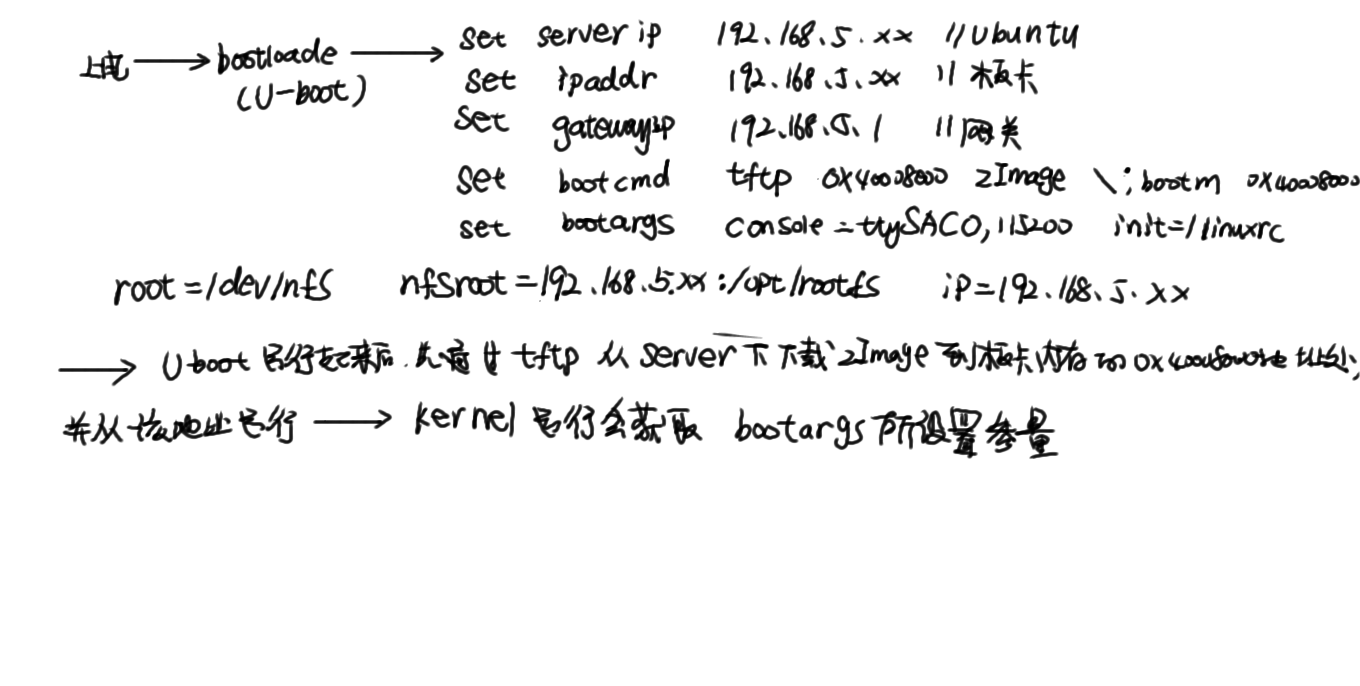 上电 → bootloade → set serverip 192.168.5.xx //Ubuntu
(U-boot) set ipaddr 192.168.5.xx // 板卡
set gatewayip 192.168.5.1 //网关
set bootcmd tftp 0x40008000 zImage \; bootm 0x40008000
set bootargs console=ttySAC0,115200 init=/linuxrc
root=/dev/nfs nfsroot=192.168.5.xx:/opt/rootfs ip=192.168.5.xx
→ Uboot 运行起来后, 先通过 tftp 从 server 下下载 zImage 到板卡内存的 0x40008000地址处,
并从该地址运行 → kernel 运行会获取 bootargs 所设置参量